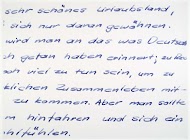 sehr schönes Urlaubsland,
sich nur daran gewöhnen.
wird man an das was Deutsch
h getan haben erinnert; zu Rec
och viel zu tun sein, um zu
klichen Zusammenleben mit-
zu kommen. Aber man sollte
n hinfahren und sich ein
hlfühlen.